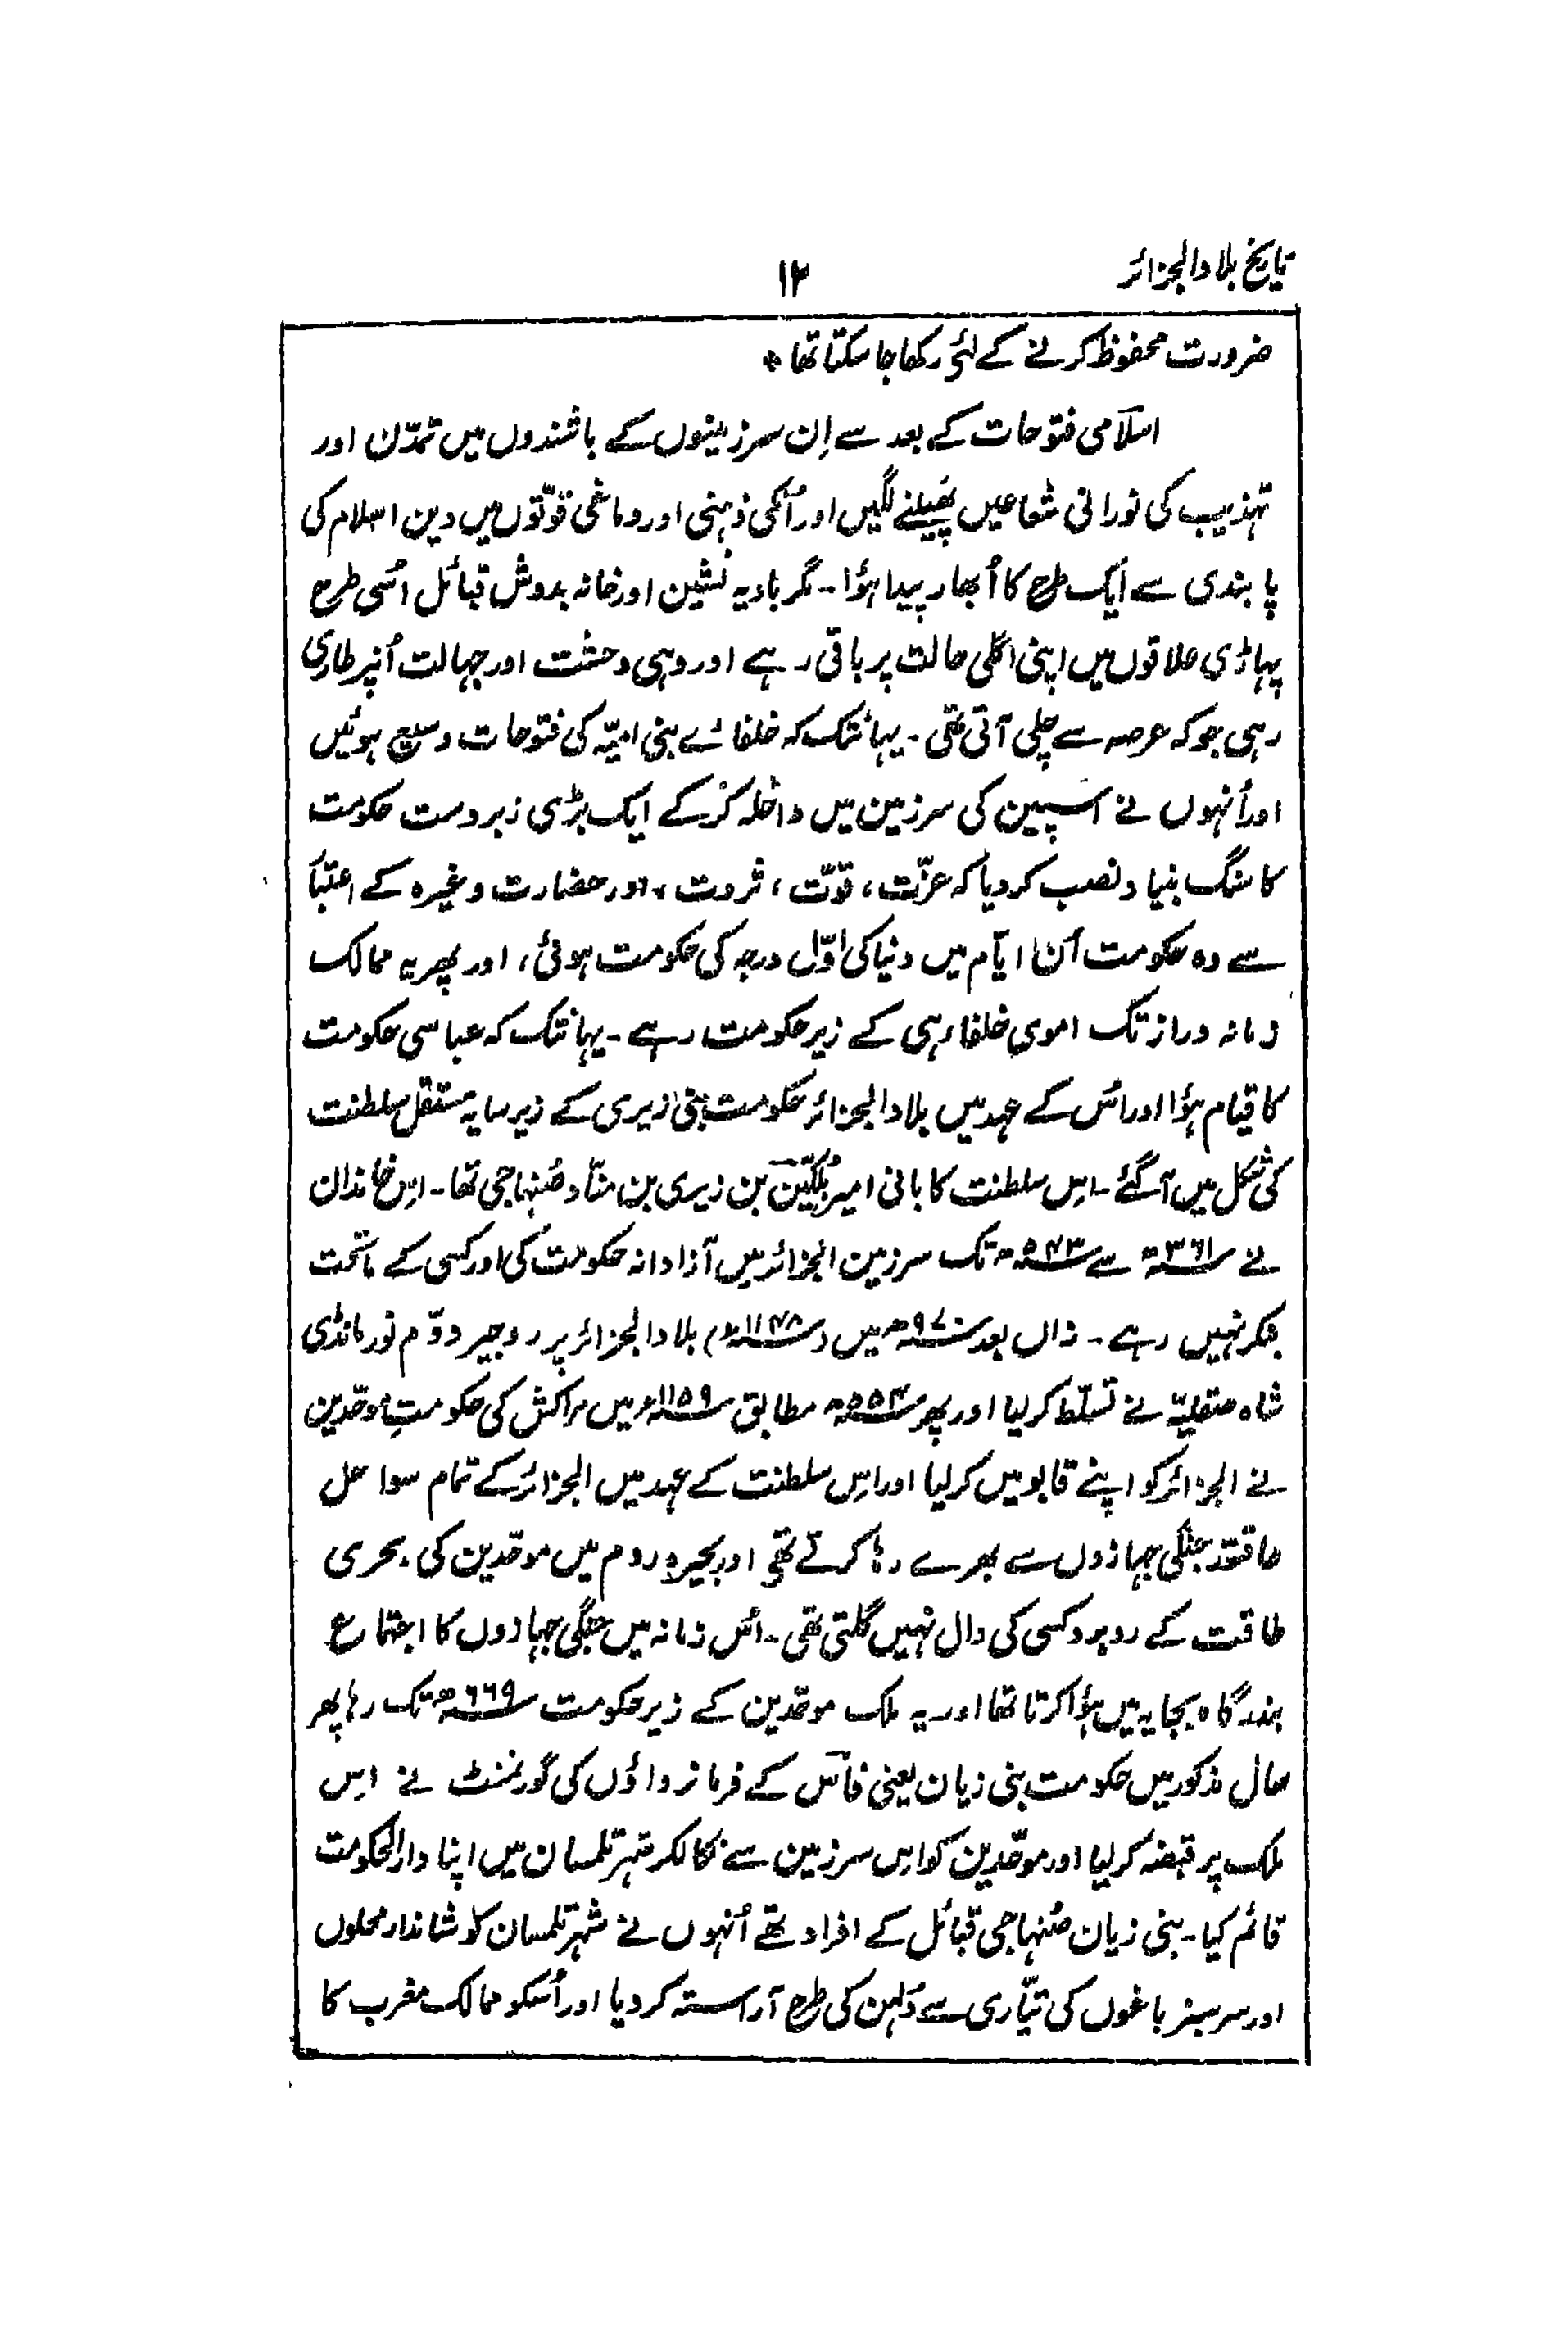 تاریخ بلاد الجزائر
۱۲
ضرورت محفوظ کرنے کے لئے رکھا جا سکتا تھا *
اسلامی فتوحات کے بعد سے اِن سرزمینوں کے باشندوں میں تمدّن اور
تہذیب کی نورانی شعاعیں پھیلنے لگیں اور اُنکی ذہنی اور دماغی قوّتوں میں دین اسلام کی
پابندی سے ایک طرح کا اُبھار پیدا ہؤا۔ مگر بادیہ نشین اور خانہ بدوش قبائل اُسی طرح
پہاڑی علاقوں میں اپنی اگلی حالت پر باقی رہے اور وہی وحشت اور جہالت اُنپر طاری
رہی جو کہ عرصہ سے چلی آتی تھی۔ یہانتک کہ خلفائے بنی امیّہ کی فتوحات وسیع ہوئیں
اور اُنہوں نے اسپین کی سرزمین میں داخلہ کرکے ایک بڑی زبردست حکومت
کا سنگ بنیاد نصب کردیا کہ عزّت، قوّت، ثروت، اور حضارت وغیرہ کے اعتبار
سے وہ حکومت اُن ایّام میں دنیا کی اوّل درجہ کی حکومت ہوئی، اور پھر یہ ممالک
زمانہ دراز تک اموی خلفاء ہی کے زیر حکومت رہے۔ یہانتک کہ عباسی حکومت
کا قیام ہؤا اور اُس کے عہد میں بلاد الجزائر حکومت بنی زیری کے زیر سایہ مستقل سلطنت
کی شکل میں آگئے۔ اِس سلطنت کا بانی امیر بُلُکّین بن زیری بن منّاد صُنہاجی تھا۔ اِس خاندان
نے ۳۶۱ھ سے ۵۴۳ھ تک سرزمین الجزائر میں آزادانہ حکومت کی اور کسی کے ماتحت
بنکر نہیں رہے۔ زاں بعد ۹۷۰ھ میں (۱۱۴۸ء) بلاد الجزائر پر روجیر دوّم نورمانڈی
شاہ صقلیّہ نے تسلّط کرلیا اور پھر ۵۵۴ھ مطابق ۱۱۵۹ء میں مراکش کی حکومتِ موحّدین
نے الجزائر کو اپنے قابو میں کرلیا اور اِس سلطنت کے عہد میں الجزائر کے تمام سواحل
طاقتور جنگی جہازوں سے بھرے رہا کرتے تھے اور بحیرہِ روم میں موحّدین کی بحری
طاقت کے روبرو کسی کی دال نہیں گلتی تھی۔ اُس زمانہ میں جنگی جہازوں کا اجتماع
بندرگاہ بجایہ میں ہؤا کرتا تھا اور یہ ملک موحّدین کے زیر حکومت ۶۶۹ھ تک رہا پھر
سال مذکور میں حکومت بنی زیان یعنی فاس کے فرمانرواؤں کی گورنمنٹ نے اِس
ملک پر قبضہ کرلیا اور موحّدین کو اِس سرزمین سے نکالکر شہر تلمسان میں اپنا دارالحکومت
قائم کیا۔ بنی زیان صُنہاجی قبائل کے افراد تھے اُنہوں نے شہر تلمسان کو شاندار محلوں
اور سرسبز باغوں کی تیّاری سے دُلہن کی طرح آراستہ کردیا اور اُسکو ممالک مغرب کا